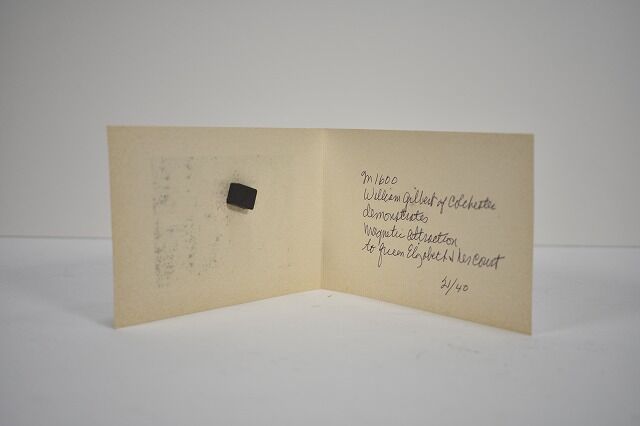 In 1600
William Gilbert of Colchester
demonstrates
magnetic attraction
to Queen Elizabeth & her Court
21/40